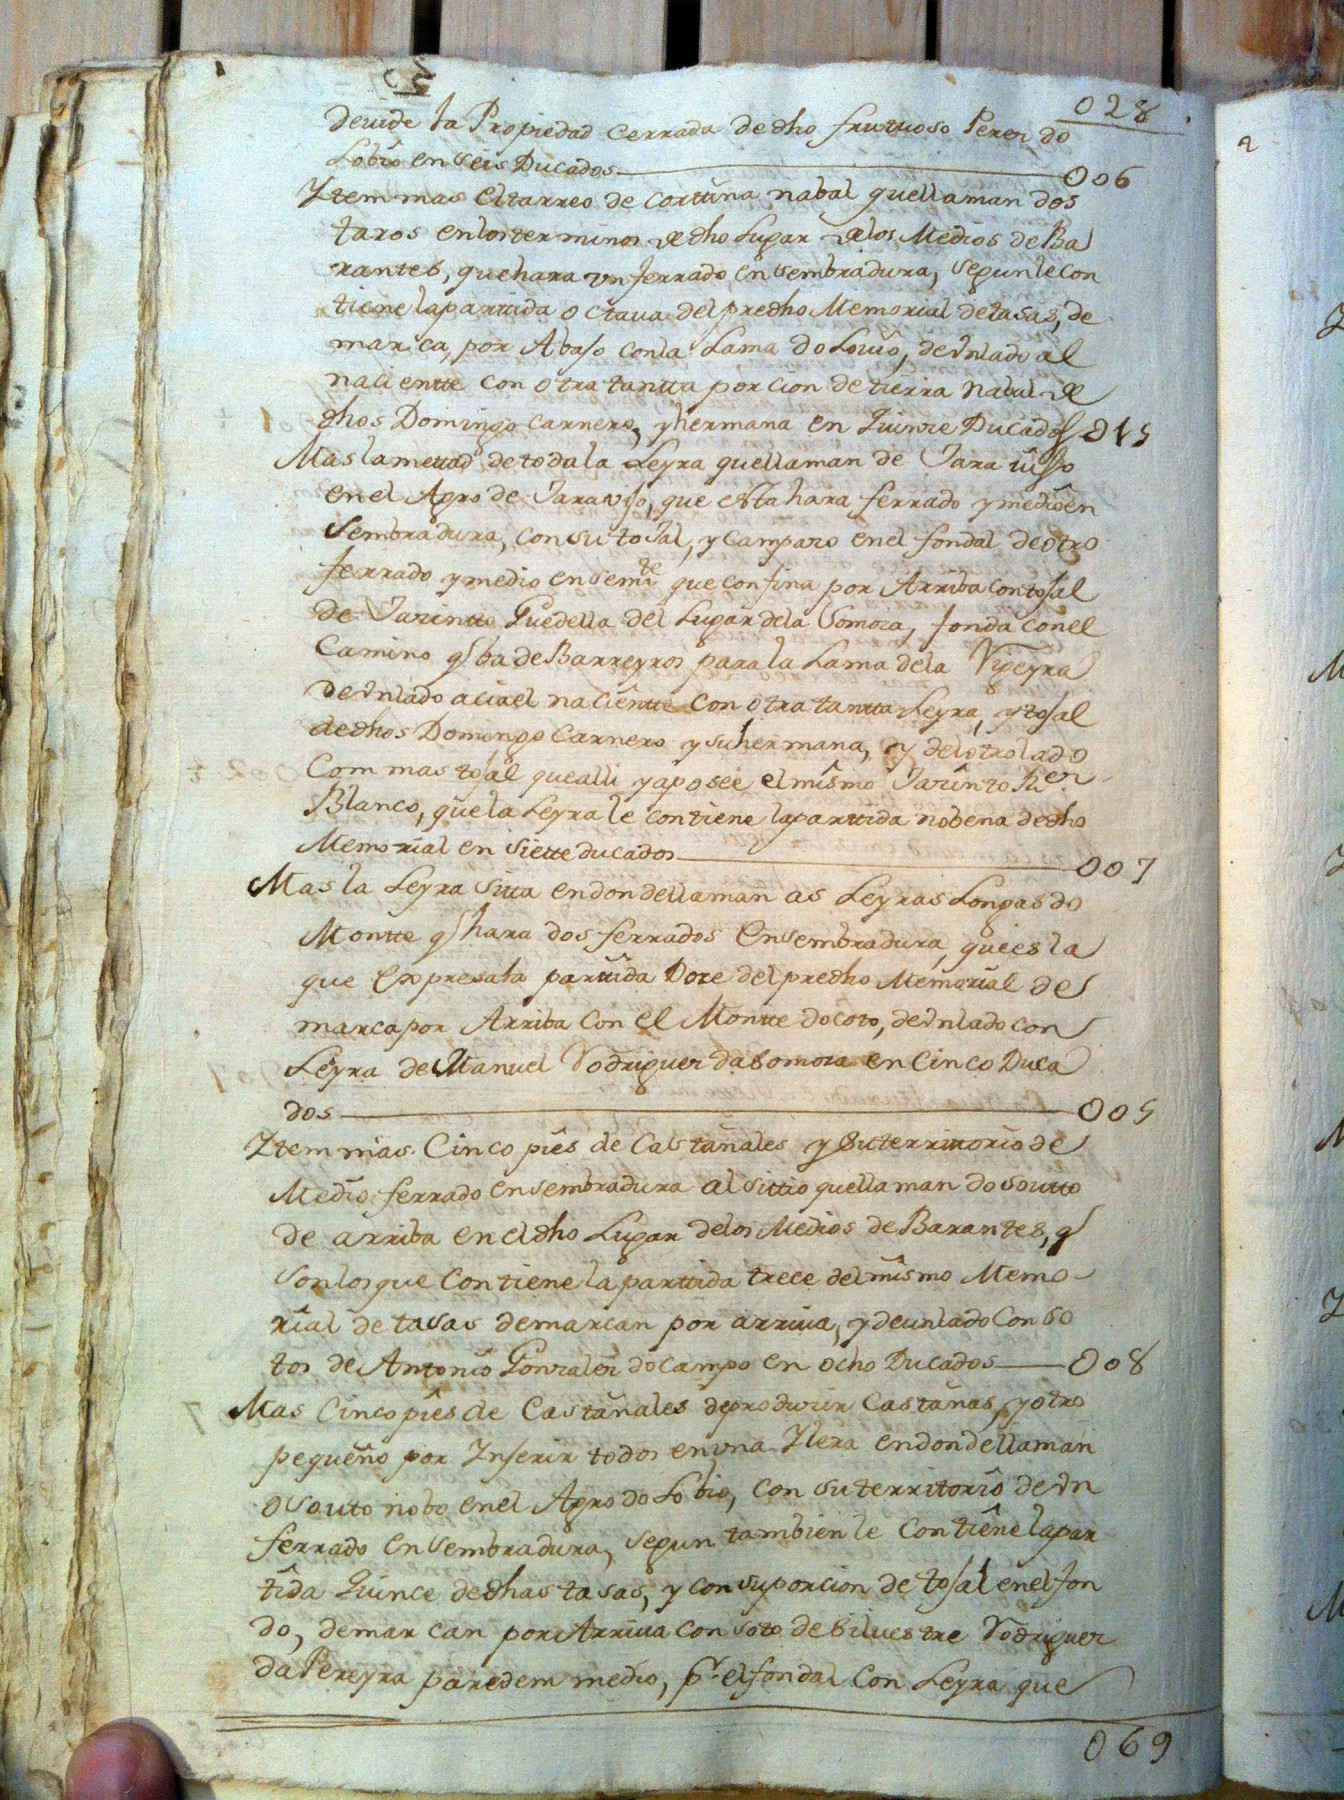 028
devide la Propiedad cerrada de dho fructuoso Perez do
Lobio en seis Ducados 006
Ytem mas el tarreo de cortiña nabal que llaman dos
taros en los terminos de dho Lugar de los Medios de Ba
rantes, que hara un ferrado en sembradura, segun le con
tiene la partida octava del predho Memorial de tasas, de
marca, por Abajo con la Lama do Lovio, de Un lado al
nacientte con otra tantta porcion de tierra nabal de
dhos Domingo Carnero, y hermana en Quince Ducados 015
Mas la mettad de toda la Leyra que llaman de Jara viso
en el Agro de Jaraviso, que esta hara ferrado y medio en
sembradura, con su tojal, y camparo en el fondal de otro
ferrado y medio en semte que confina por Arriba con tojal
de Jacintto Guedella del Lugar de la Somoza, fonda con el
Camino q ba de Barreyros para la Lama de la Vigeyra
de Un lado acia el nacientte con otra tantta Leyra, y tojal
de dhos Domingo Carnero y su hermana, y del otro lado
Com mas tojal que alli ya posee el mismo Jacinto Rer
Blanco, que la Leyra le contiene la partida nobena de dho
Memorial en siette ducados 007
Mas la Leyra sitta en donde llaman as Leyras Longas do
Montte q hara dos ferrados en sembradura, que es la
que expresa la partida Doce del predho Memorial de
marca por Arriba con el Montte do coto, de Un lado con
Leyra de Manuel Rodriguez da Somoza en Cinco Duca
dos 005
Ytem mas Cinco pies de Castañales y su territorio de
Medio ferrado en sembradura al sittio que llaman do soutto
de arriba en el dho Lugar de los Medios de Barantes, q
son los que contiene la partida trece del mismo Memo-
rial de tasas demarcan por arriva, y de un lado con so
tos de Antonio Gonzalez do campo en ocho Ducados 008
Mas Cinco pies de Castañales de producir Castañas, y otro
pequeño por Inserir todos en una Ylera en donde llaman
o souto nobo en el Agro do Lobio, con su territorio de Un
ferrado en sembradura, segun tambien le contiene la par
tida Quince de dhas tasas, y con su porcion de tojal en el fon
do, demarcan por Arriva con soto de Silvestre Rodriguez
da Pereyra pared em medio, pr el fondal con Leyra que
069